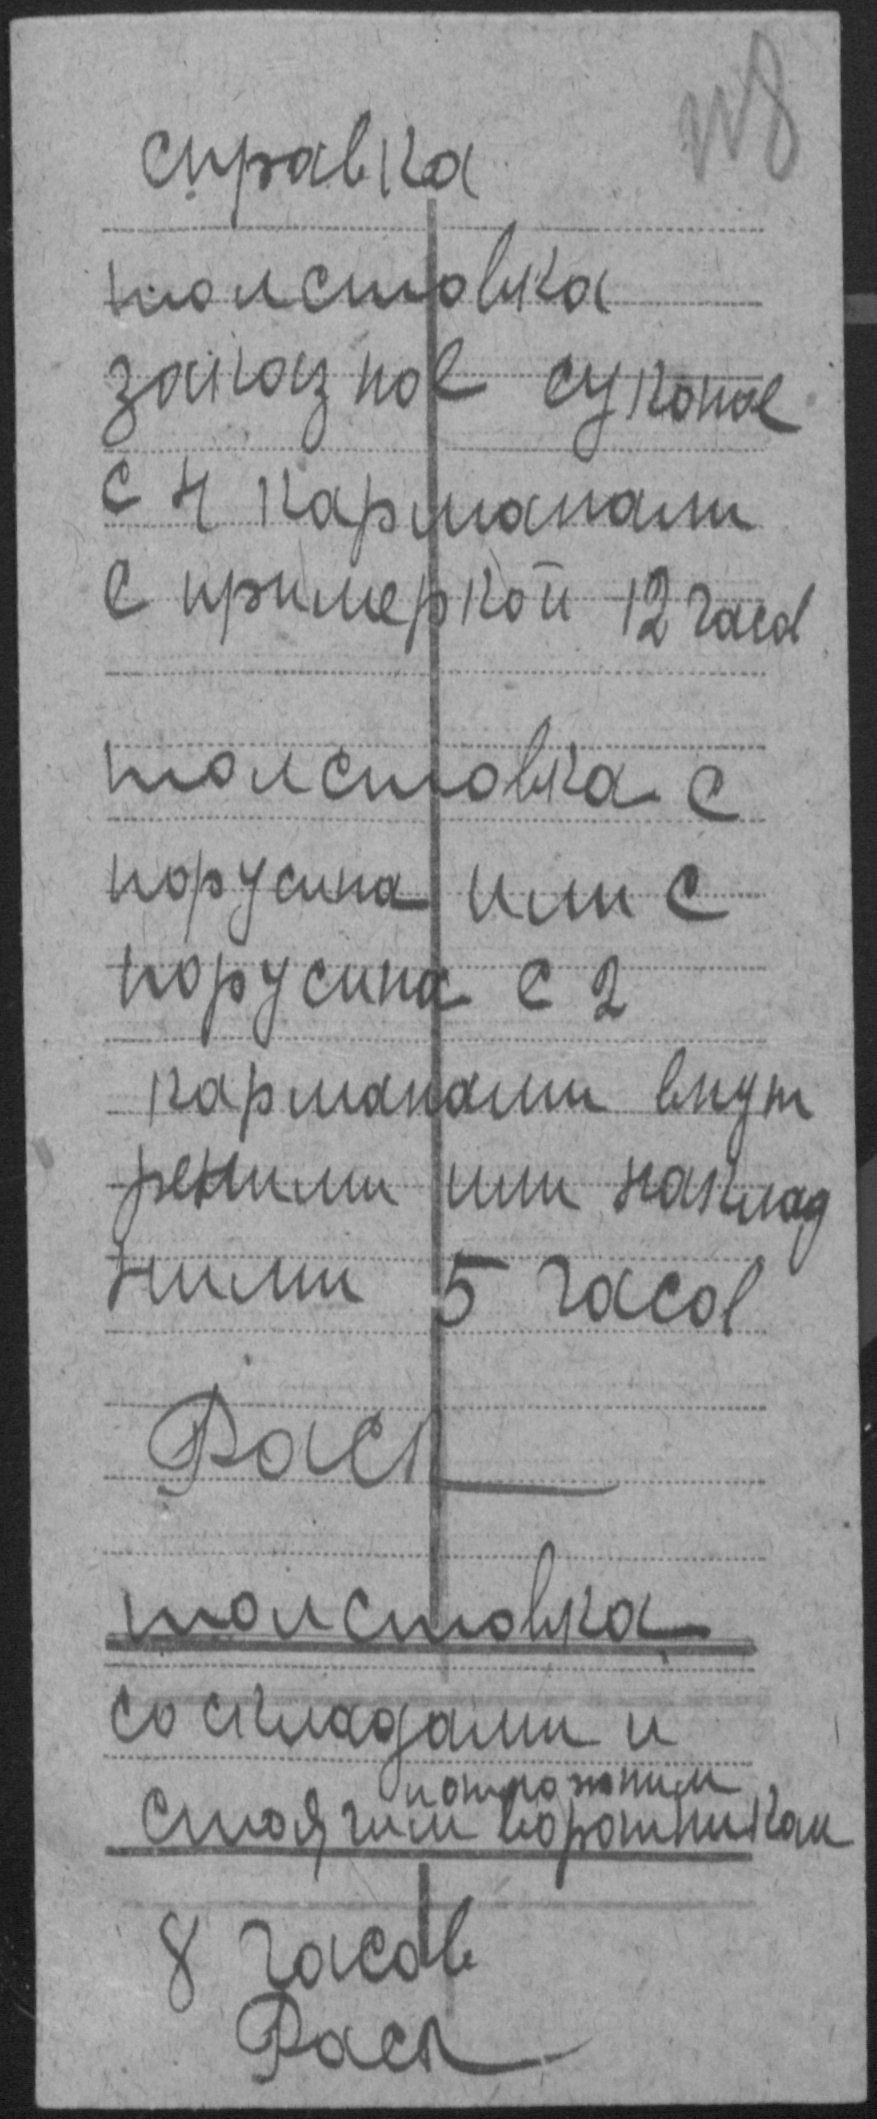 №8
справка
толстовка
заказное суконое
с 4 карманами
с примеркой 12 часов
толстовка с
порусина или с
порусина с 2
карманами внут
реними или наклад
ними 5 часов
толстовка
со складами и
стоячим воротникам
8 часов